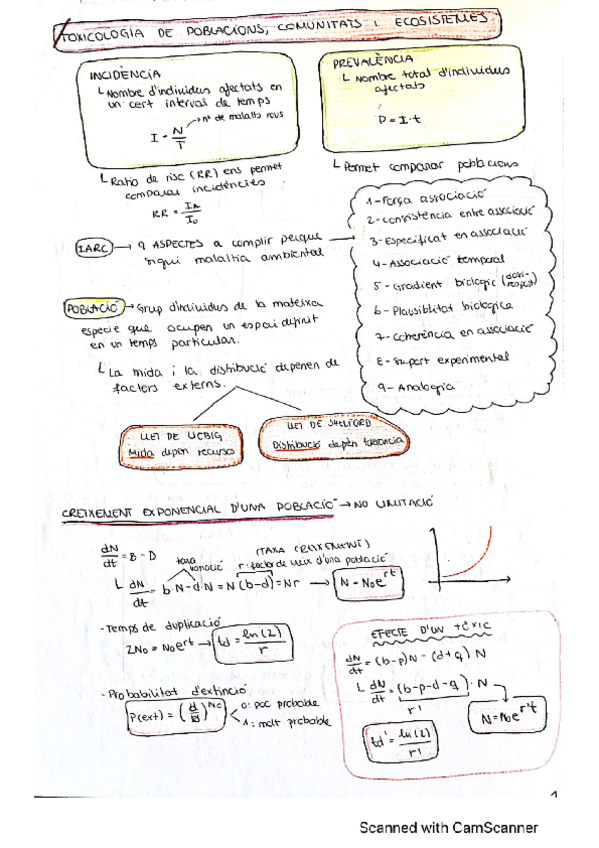 TOXICOLOGÍA DE POBLACIONS, COMUNITATS I ECOSISTEMES
INCIDÈNCIA
Nombre d'individus afectats en
un cert interval de temps
→ nº de malalts nous
I = N/T
Ratio de risc (RR) ens permet
comparar incidències
RR = I₁/I₀
PREVALÈNCIA
Nombre total d'individus
afectats
P = I · t
Permet comparar poblacions
IARC → 9 ASPECTES a complir perquè →
sigui malaltia ambiental
1 - Força associació
2 - consistència entre associació
3 - Especificat en associació
4 - Associació temporal
5 - Gradient biologic (dosi-
resposta)
6 - Plausiblitat biologica
7 - Coherència en associació
8 - Suport experimental
9 - Analogia
POBLACIÓ → Grup d'individus de la mateixa
especie que ocupen un espai definit
en un temps particular.
La mida i la distribució depenen de
factors externs.
LLEI DE LIEBIG
Mida depen recursos
LLEI DE SHELFORD
Distribució depèn tolerancia
CREIXEMENT EXPONENCIAL D'UNA POBLACIÓ → NO LIMITACIÓ
dN/dt = B - D
taxa
variació
(TAXA CREIXEMENT)
r: factor de creix d'una població
dN/dt = b·N - d·N = N(b-d) = Nr → N = N₀e^rt
- Temps de duplicació
2N₀ = N₀e^rt → td = ln(2)/r
- Probabilitat d'extinció
P(ext) = (d/b)^N₀
0: poc probable
1: molt probable
EFECTE D'UN TÒXIC
dN/dt = (b-p)N - (d+q)N
dN/dt = (b-p-d-q)·N
r'
N = N₀e^r't
td' = ln(2)/r'
1
Scanned with CamScanner